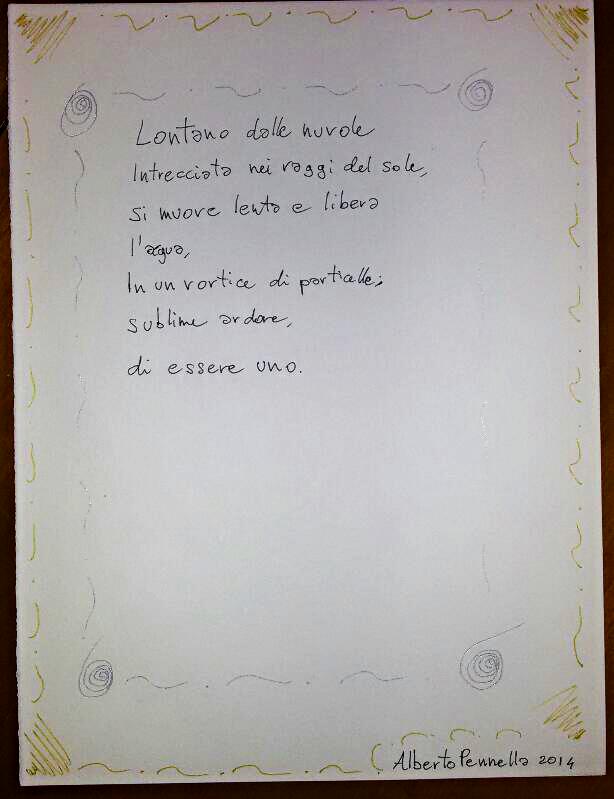 Lontano dalle nuvole
Intrecciata nei raggi del sole,
si muove lenta e libera
l'acqua,
In un vortice di particelle;
sublime ardore,
di essere uno.
Alberto Pennella 2014